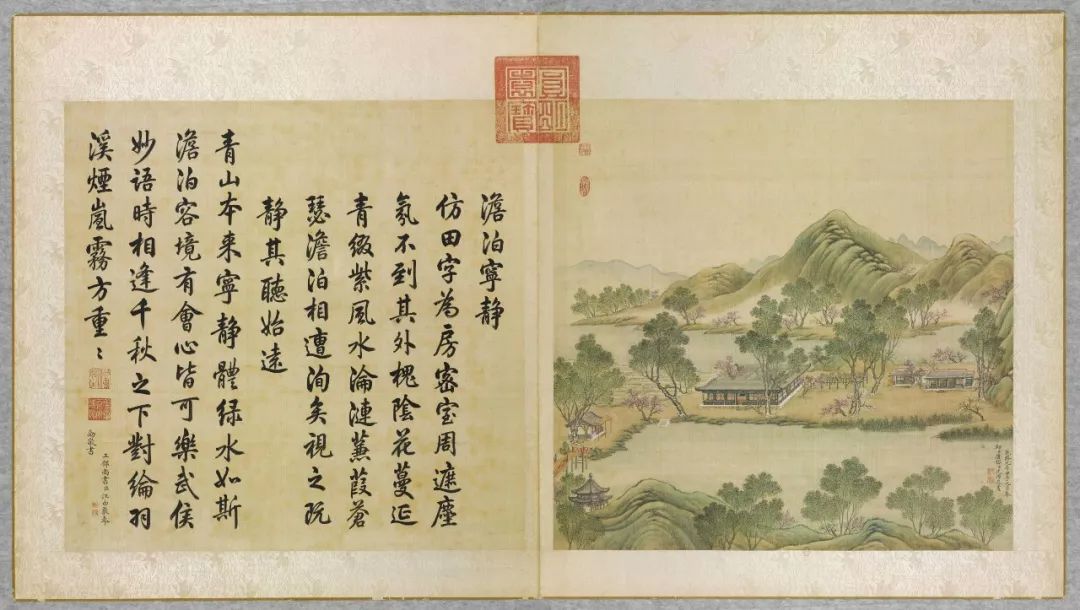 圓明園寶
澹泊寧靜
仿田字為房密室周遮塵
氛不到其外槐陰花蔓延
青綴紫風水淪漣蒹葭蒼
瑟澹泊相遭洵矣視之既
靜其聽始遠
青山本來寧靜體綠水如斯
澹泊容境有會心皆可樂武侯
妙語時相逢千秋之下對綸羽
溪煙嵐霧方重〻
工部尚書臣汪由敦奉
勑敬書